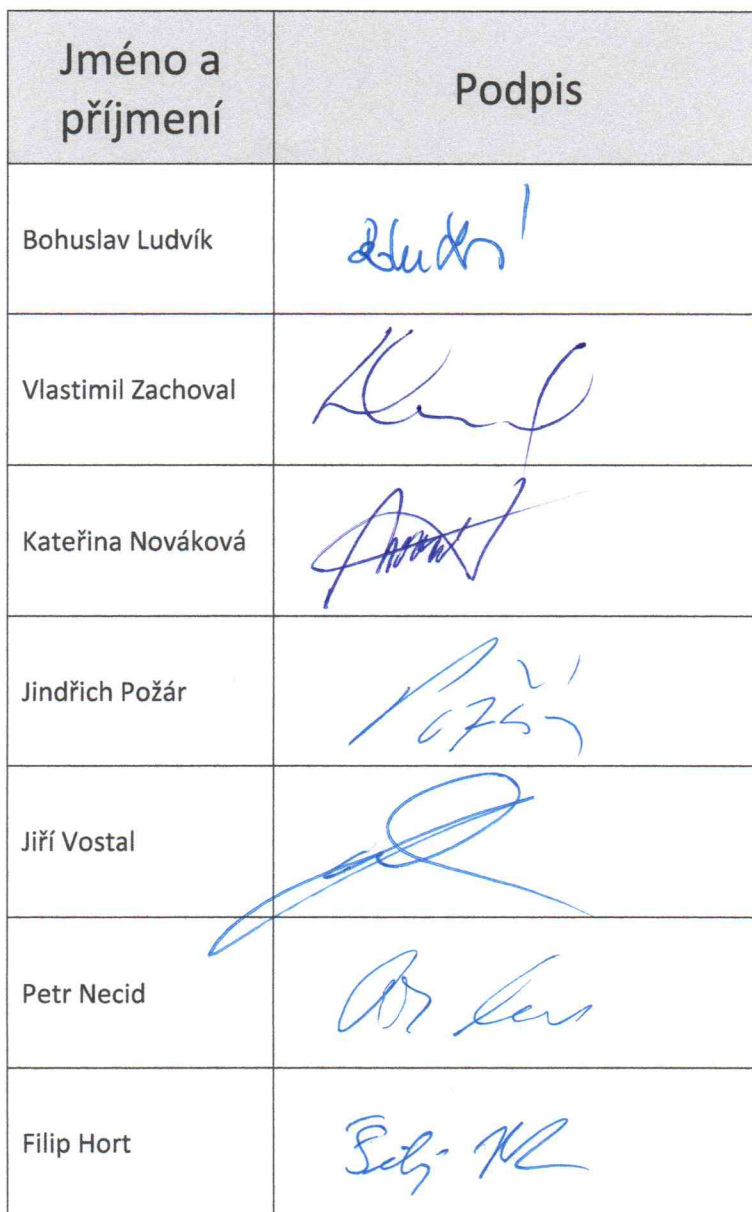 Jméno a
příjmení
Podpis
Bohuslav Ludvík
Vlastimil Zachoval
Kateřina Nováková
Jindřich Požár
Požár
Jiří Vostal
Petr Necid
Filip Hort